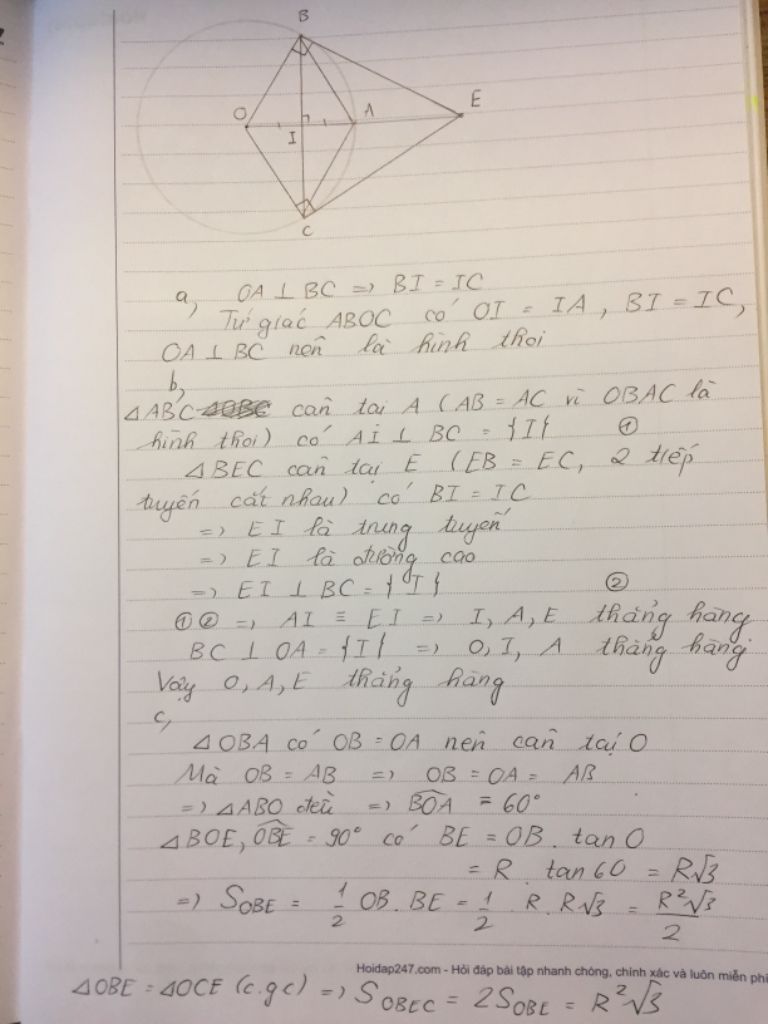 B
O
I
A
E
C
a, OA ⊥ BC => BI = IC
Tứ giác ABOC có OI = IA, BI = IC,
OA ⊥ BC nên là hình thoi
b,
ΔABC cân tại A (AB = AC vì OBAC là
hình thoi) có AI ⊥ BC = {I} ①
ΔBEC cân tại E (EB = EC, 2 tiếp
tuyến cắt nhau) có BI = IC
=> EI là trung tuyến
=> EI là đường cao
=> EI ⊥ BC = {I} ②
①② => AI ≡ EI => I, A, E thẳng hàng
BC ⊥ OA = {I} => O, I, A thẳng hàng
Vậy O, A, E thẳng hàng
c,
ΔOBA có OB = OA nên cân tại O
Mà OB = AB => OB = OA = AB
=> ΔABO đều => \widehat{BOA} = 60°
ΔBOE, \widehat{OBE} = 90° có BE = OB . tan O
= R . tan 60 = R√3
=> S_{OBE} = \frac{1}{2} OB . BE = \frac{1}{2} R. R√3 = \frac{R²√3}{2}
Hoidap247.com - Hỏi đáp bài tập nhanh chóng, chính xác và luôn miễn phí
ΔOBE = ΔOCE (c.g.c) => S_{OBEC} = 2S_{OBE} = R²√3